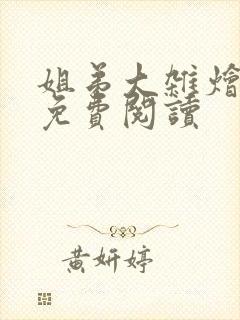 姐弟大雜燴
免費閱讀
黃妍婷